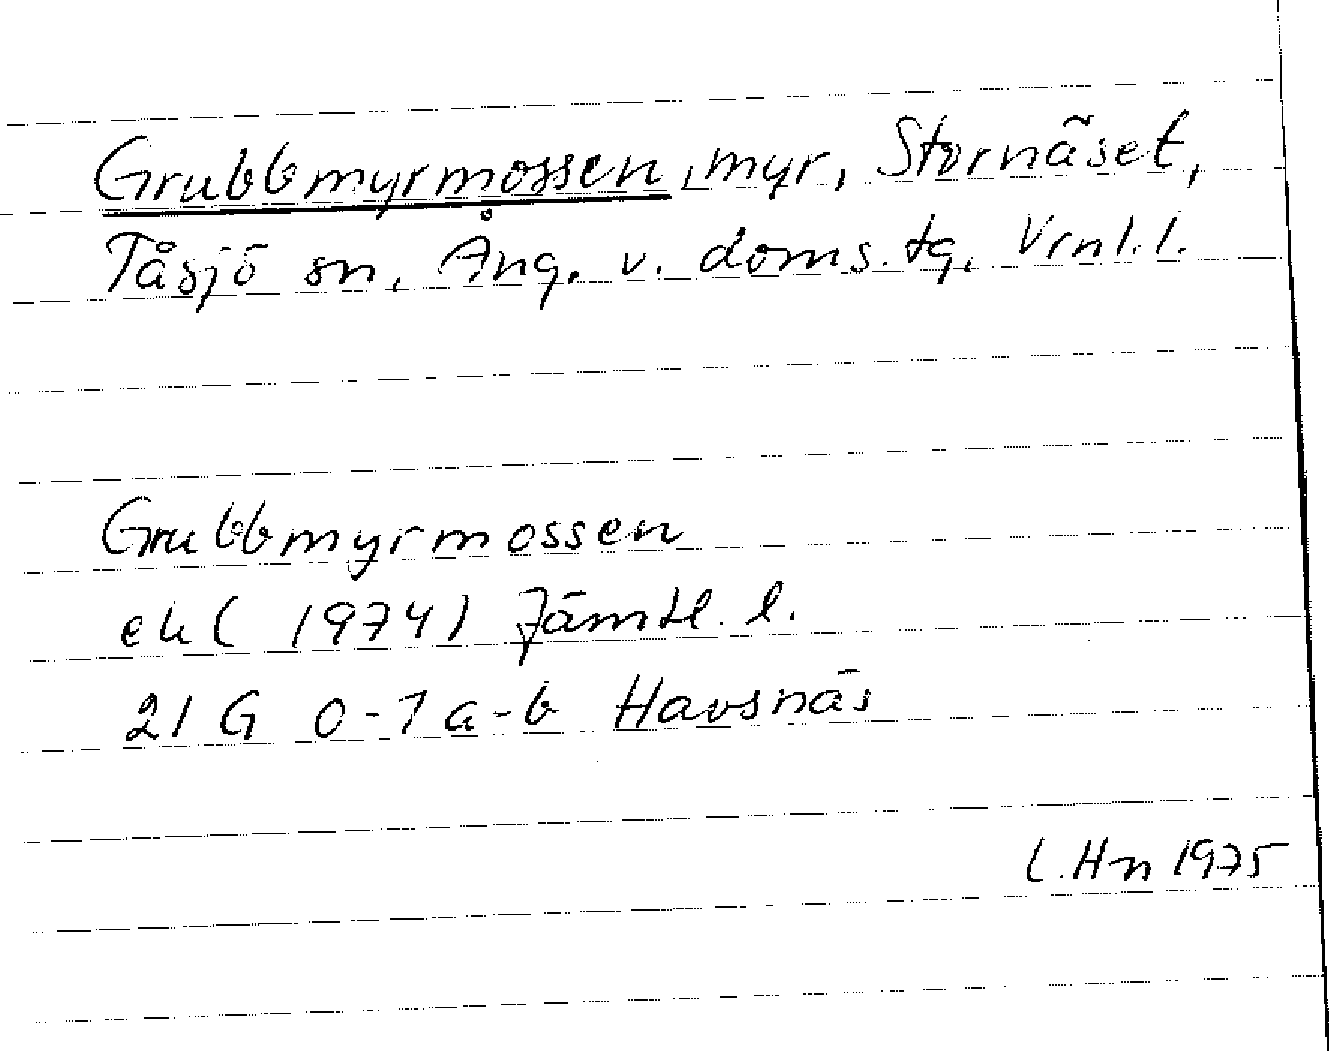 Grubbmyrmossen, myr, Stornäset,
Tåsjö sn, Ång. v. doms.tg, Vrnl.l.
Grubbmyrmossen
ek (1974) Jämtl. l.
21 G 0-1 a-b Havsnäs
L.Hn 1975